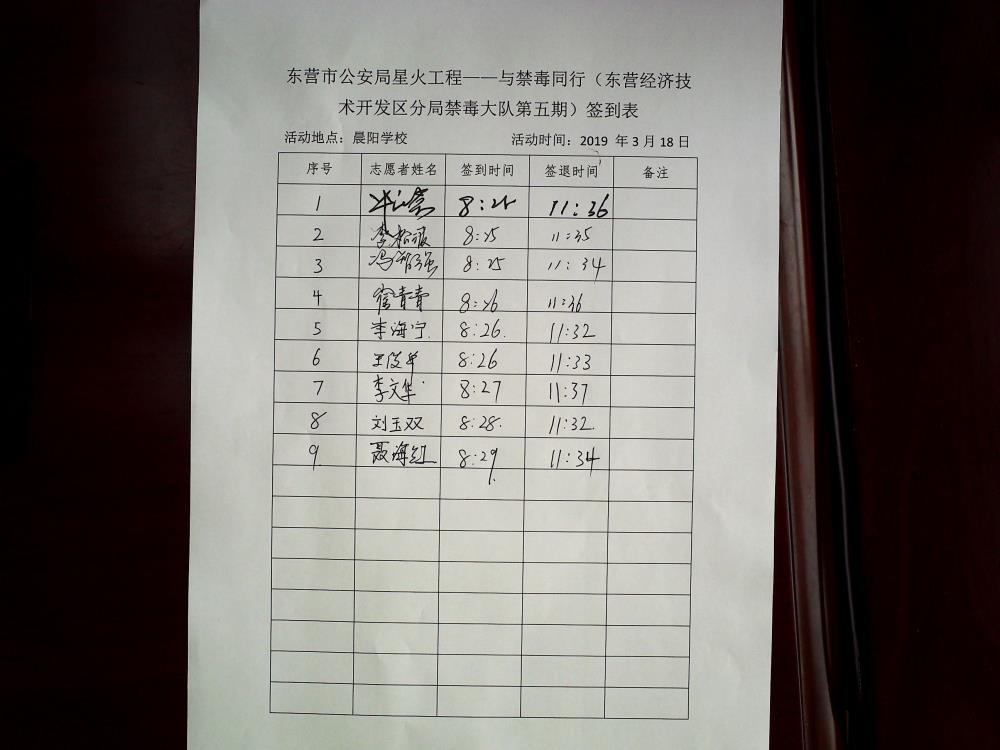 东营市公安局星火工程——与禁毒同行（东营经济技
术开发区分局禁毒大队第五期）签到表
活动地点：晨阳学校 活动时间：2019 年 3 月 18 日
序号 志愿者姓名 签到时间 签退时间 备注
1 8:25 11:36
2 李松 8:25 11:35
3 冯 强 8:25 11:34
4 崔青青 8:26 11:36
5 李海宁 8:26. 11:32
6 王俊 8:26 11:33
7 李文华 8:27 11:37
8 刘玉双 8:28. 11:32.
9. 聂海红 8:29 11:34